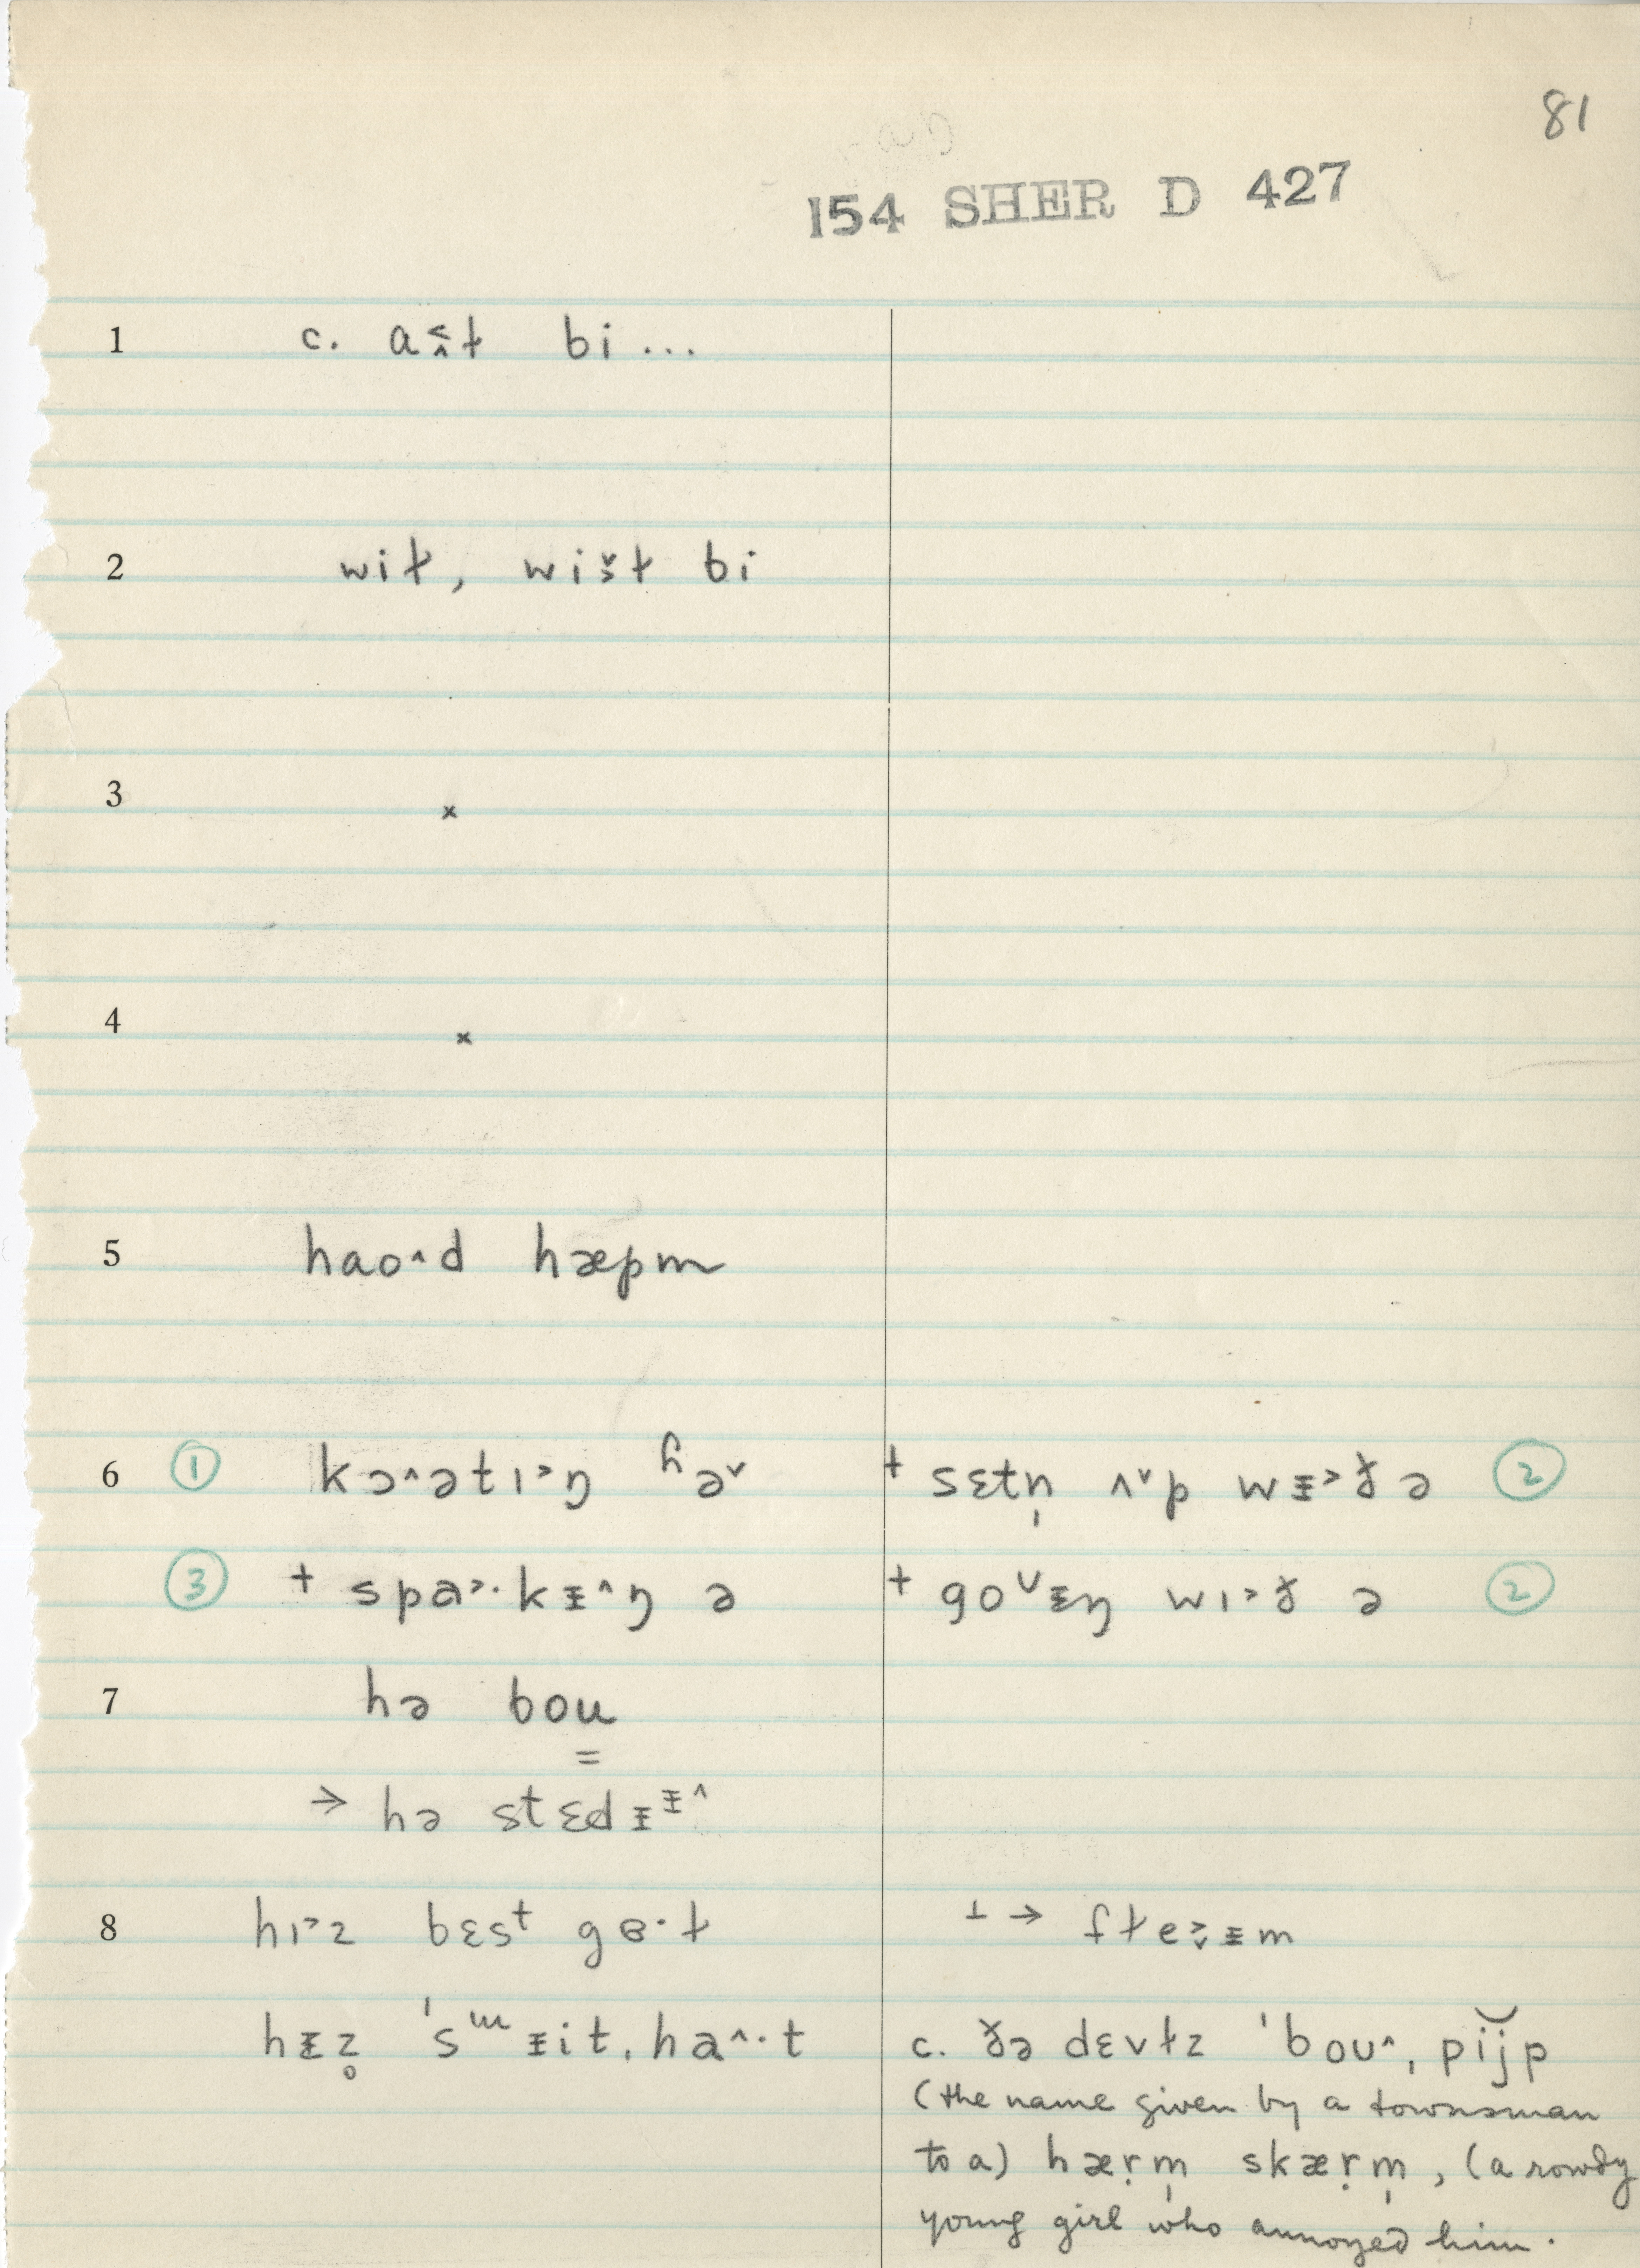 81
154 SHER D 427
1 c. aš̭ɫ bi...
2 wiɫ, wišɫ bi
3 x
4 x
5 hao^d hæpm
6 ① kɔ^ətɪ˃ŋ ɦə˅ + sɛtn̩ ʌ˅p wᵻ˃ðə ②
③ + spa˃·kᵻ^ŋ ə + goᵛᵻŋ wɪ˃ð ə ②
7 hə bou
=
→ hə stɛdᵻᵻ^
8 hɪ˃z bɛsᵗ gɵ·ɫ ⊥ → fɫe˃̬ᵻm
hᵻz̥ ˈsᵚᵻit, ha^·t c. ðə dɛvɫz ˈboʊ^, pij̆p
(the name given by a townsman
to a) hæṛm̩ skæṛm̩, (a rowdy
young girl who annoyed him.